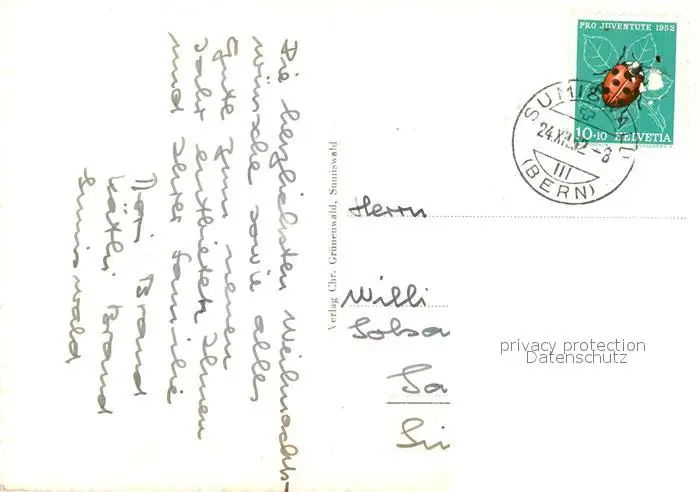 Die herzlichsten Weihnachts-
wünsche sowie alles
Gute zum neuen
Jahr entbietet Ihnen
und Ihrer Familie
Brand
Käthi Brand
Sumiswald
Verlag Chr. Grünenwald, Sumiswald
PRO JUVENTUTE 1952
10+10 HELVETIA
SUMISWALD
24.XII.52-8
III
(BERN)
Herrn
Willi
privacy protection
Datenschutz